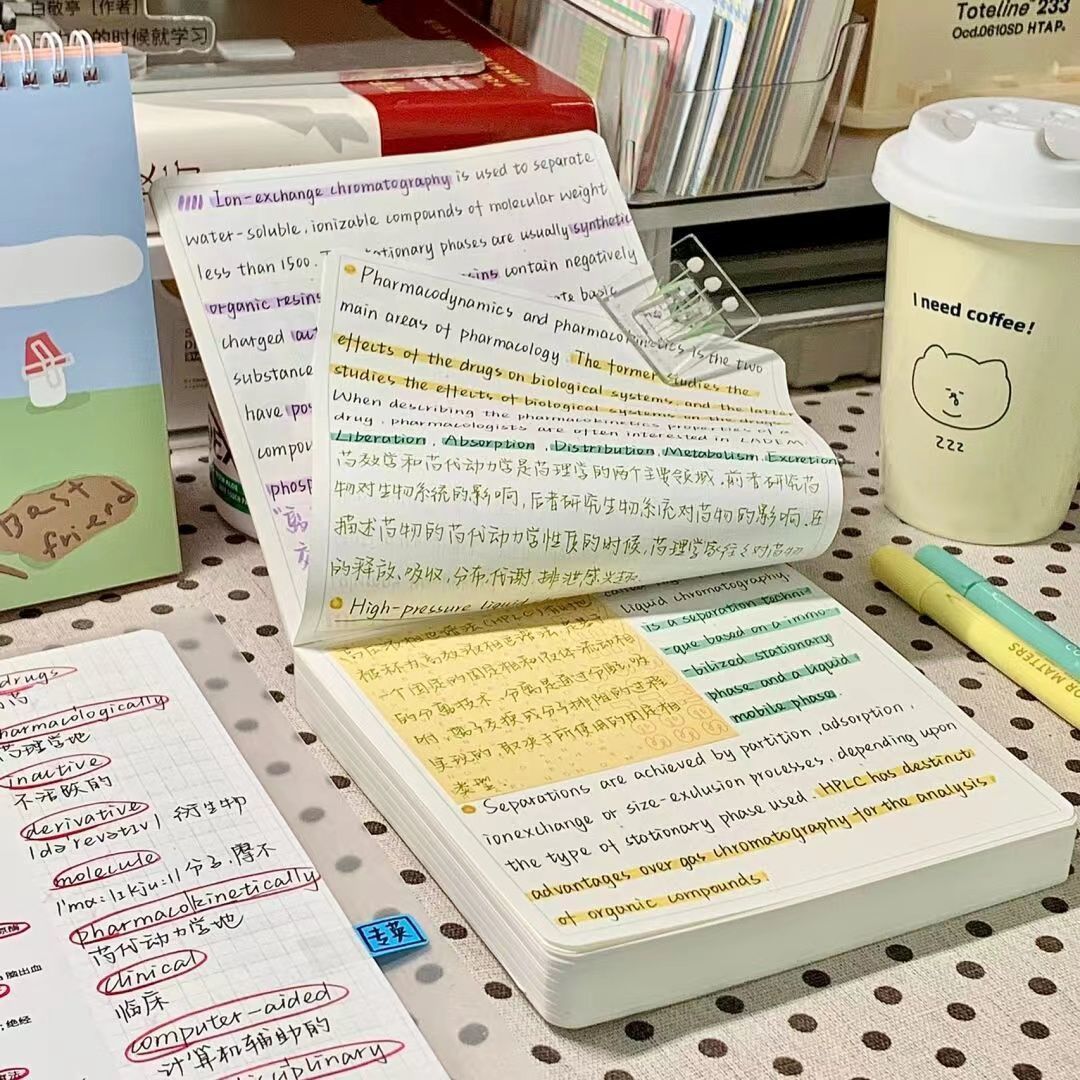 白敬亭 [作者]
的时候就学习
Toteline™233
Ocd.0610SD HTAP.
Ion-exchange chromatography is used to separate
water-soluble, ionizable compounds of molecular weight
less than 1500. stationary phases are usually synthetic
organic resins contain negatively
charged basic
substance
have
compou
phosp
Pharmacodynamics and pharmacokinetics is the two
main areas of pharmacology. The former studies the
effects of the drugs on biological systems, and the latter
studies the effects of biological systems on the drugs
When describing the pharmacokinetics properties of a
drug, pharmacologists are often interested in LADEM
Liberation, Absorption, Distribution, Metabolism, Excretion
药效学和药代动力学是药理学的两个主要领域.前者研究药
物对生物系统的影响,后者研究生物系统对药物的影响.在
描述药物的药代动力学性质的时候,药理学家往往对药物
的释放、吸收,分布,代谢,排泄感兴趣.
High-pressure liquid
liquid chromatography
is a separation techni
-que based on a immo
-bilized stationary
phase and a liquid
mobile phase.
被称为高效液相色谱法,是基于
一个固定的固定相和液体流动相
的分离技术,分离是通过分配,吸
附,离子交换或分子排阻的过程
实现的,取决于所使用的固定相
类型.
Separations are achieved by partition, adsorption,
ionexchange or size-exclusion processes, depending upon
the type of stotionary phase used. HPLC has destinct
advantages over gas chromatography for the analysis
of organic compounds.
I need coffee!
zzz
Best
friend
MATTERS
drugs
pharmacologically
药理学地
inactive
不活跃的
derivative
/də'revətiv/ 衍生物
molecule
分子,摩尔
pharmacokinetically
药代动力学地
clinical
临床
computer-aided
计算机辅助的
ciplinary
专英
脑出血
绝经